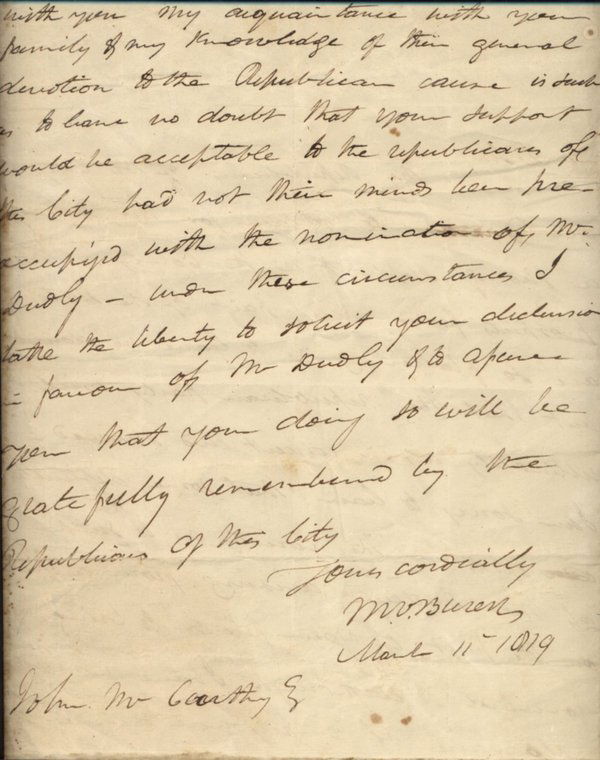 with you my acquaintance with your
family & my knowledge of their general
devotion to the Republican cause is such
as to leave no doubt that your support
would be acceptable to the republicans of
this City had not their minds been pre-
occupied with the nomination of Mr.
Dudly – under these circumstances I
take the liberty to solicit your declension
in favour of Mr Dudly & to assure
you that your doing so will be
gratefully remembered by the
Republicans of this City
Yours cordially
M.V.Buren
March 11 1819
John Mc Carthy Esq